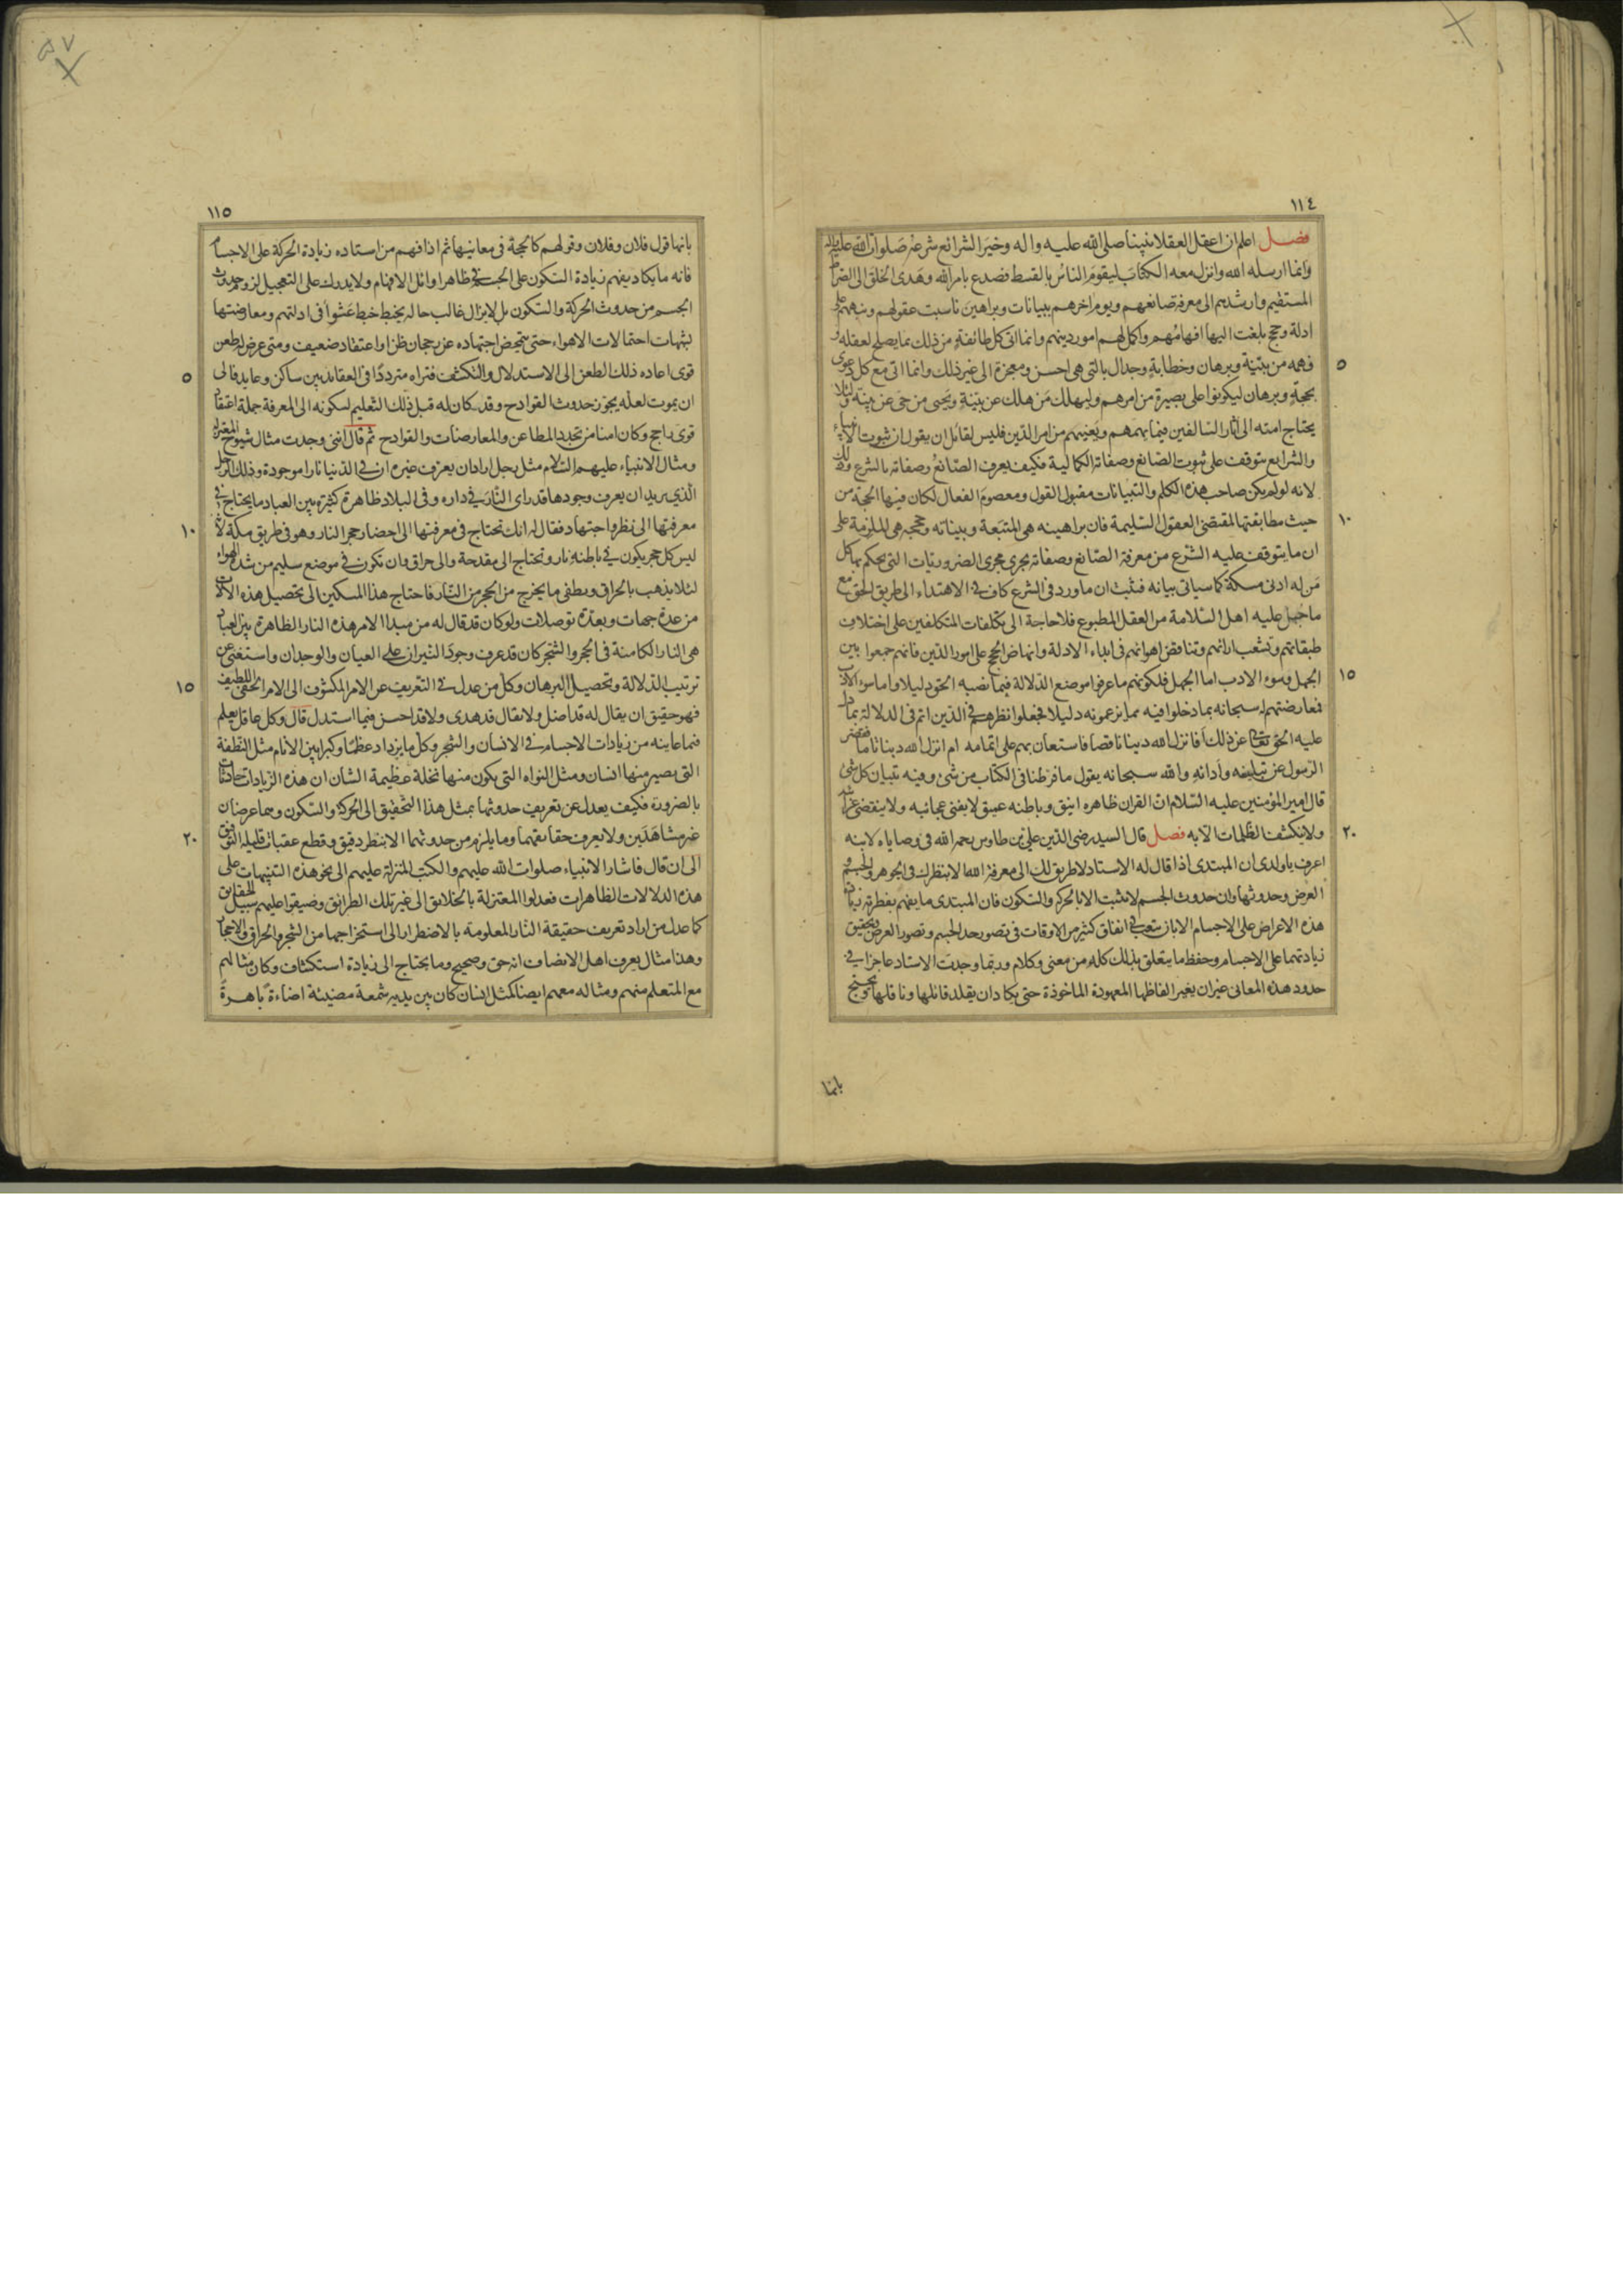 ١١٤
فصل اعلم ان اعقل العقلا نبينا صلى الله عليه واله وخير الشرائع شرعه صلوات الله عليه واله
وانما ارسله الله وانزل معه الكتاب ليقوم الناس بالقسط فصدع بامر الله وهدى الخلق الى الصراط
المستقيم وارشدهم الى معرفة صانعهم ويوم اخرهم ببيانات وبراهين ناسبت عقولهم ونبههم على
ادلة وحجج بلغت اليها افهامهم واكمل لهم امور دينهم وانما اتى كل طائفة من ذلك بما يصلح لعقله و
٥
فهمه من بينة وبرهان وخطابة وجدال بالتى هى احسن ومعجزة الى غير ذلك وانما اتى مع كل دعوى
بحجة وبرهان ليكونوا على بصيرة من امرهم وليهلك من هلك عن بينة ويحيى من حى عن بينة ولئلا
يحتاج امته الى اثار السالفين فيما يهمهم ويعنيهم من امر الدين فليس لقائل ان يقول ان ثبوت الانبياء
والشرايع يتوقف على ثبوت الصانع وصفاته الكمالية فكيف يعرف الصانع وصفاته بالشرع وذلك
لانه لو لم يكن صاحب هذه الكلم والتبيانات مقبول القول ومعصوم الفعال لكان فيها الحجة من
١٠
حيث مطابقتها لمقتضى العقول السليمة فان براهينه هى المتبعة وبيناته وحججه هى الملزمة على
ان ما يتوقف عليه الشرع من معرفة الصانع وصفاته يجرى مجرى الضروريات التى يحكم بها كل
من له ادنى مسكة كما سياتى بيانه فثبت ان ما ورد فى الشرع كاف فى الاهتداء الى طريق الحق مع
ما جبل عليه اهل السلامة من العقل المطبوع فلا حاجة الى تكلفات المتكلفين على اختلاف
طبقاتهم وتشعب ارائهم وتناقض اهوائهم فى ابداء الادلة وانهاض الحجج على امور الدين فانهم جمعوا بين
١٥
الجهل وسوء الادب اما الجهل فلكونهم ما عرفوا موضع الدلالة فيما نصبه الحق دليلا واما سوء الادب
فمعارضتهم له سبحانه بما دخلوا فيه مما يزعمونه دليلا فجعلوا نظرهم فى الدين اتم فى الدلالة مما دل
عليه الحق تعالى عن ذلك أفانزل الله دينا ناقصا فاستعان بهم على اتمامه ام انزل الله دينا تاما فقصر
الرسول عن تبليغه وادائه والله سبحانه يقول ما فرطنا فى الكتاب من شئ وفيه تبيان كل شئ
قال امير المؤمنين عليه السلام ان القران ظاهره انيق وباطنه عميق لا يفنى عجائبه ولا ينقضى غرائبه
٢٠
ولا يكشف الظلمات الا به فصل قال السيد رضى الدين على بن طاوس رحمه الله فى وصاياه لابنه
اعرف يا ولدى ان المبتدى اذا قال له الاستاد لا طريق لك الى معرفة الله الا بنظرك فى الجوهر والجسم و
العرض وحدوثها وان حدوث الجسم لا يثبت الا بالحركة والسكون فان المبتدى ما يفهم بفطرته زيادة
هذه الاعراض على الاجسام الا بان يتعب فى انفاق كثير من الاوقات فى تصور حد الجسم وتصور العرض وتحقيق
زيادتهما على الاجسام وحفظ ما يتعلق بذلك كله من معنى وكلام وربما وجدت الاستاد عاجزا فى
حدود هذه المعانى عن ان يغير الفاظها المعهودة الماخوذة حتى يكاد ان يقلد قائلها وناقلها ويحتج
بانها
١١٥
بانها قول فلان وفلان وقولهم كالحجة فى معانيها ثم اذا فهم من استاده زيادة الحركة على الاجسام
فانه ما يكاد يفهم زيادة السكون على الجسم فى ظاهر اوائل الافهام ولا يدرك على التعجيل لزوم حدوث
الجسم من حدوث الحركة والسكون بل لا يزال غالب حاله يخبط خبط عشوا فى ادلتهم ومعارضتها
بشبهات احتمالات الاهواء حتى يتمحض اجتهاده عن رجحان ظن او اعتقاد ضعيف ومتى عرض له طعن
٥
قوى اعاده ذلك الطعن الى الاستدلال والتكشف فتراه مترددا فى العقايد بين ساكن وعايد فالى
ان يموت لعله يجوز حدوث القوادح وقد كان له قبل ذلك التعليم لسكونه الى المعرفة جملة اعتقاد
قوى راجح وكان امنا من تجدد المطاعن والمعارضات والقوادح ثم قال اننى وجدت مثال شيوخ المعتزلة
ومثال الانبياء عليهم السلام مثل رجل اراد ان يعرف غيره ان فى الدنيا نارا موجودة وذلك الرجل
الذى يريد ان يعرف وجودها قد راى النار فى داره وفى البلاد ظاهرة كثيرة بين العباد ما يحتاج فى
١٠
معرفتها الى نظر واجتهاد فقال له انك تحتاج فى معرفتها الى احضار حجر النار وهو فى طريق مكة لانه
ليس كل حجر يكون فى باطنه نار وتحتاج الى مقدحة والى حراق وان تكون فى موضع سليم من شدة الهواء
لئلا يذهب بالحراق ويطفى ما يخرج من الحجر من النار فاحتاج هذا المسكين الى تحصيل هذه الالات
من عدة جهات وبعدة توصلات ولو كان قد قال له من مبدا الامر هذه النار الظاهرة بين العباد
هى النار الكامنة فى الحجر والشجر كان قد عرف وجود النيران على العيان والوجدان واستغنى عن
١٥
ترتيب الدلالة وتحصيل البرهان وكل من عدل فى التعريف عن الامر المكشوف الى الامر الخفى اللطيف
فهو حقيق ان يقال له قد اضل ولا يقال قد هدى ولا قد احسن فيما استدل قال وكل عاقل يعلم
فيما عاينه من زيادات الاجسام فى الانسان والشجر وكل ما يزداد عظما وكبرا بين الانام مثل النطفة
التى يصير منها انسان ومثل النواه التى يكون منها نخلة عظيمة الشان ان هذه الزيادات حادثات
بالضرورة فكيف يعدل عن تعريف حدوثها بمثل هذا التحقيق الى الحركة والسكون وهما عرضان
٢٠
غير مشاهدين ولا يعرف حقايقهما وما يلزم من حدوثهما الا بنظر دقيق وقطع عقبات قليلة التوفيق
الى ان قال فاشار الانبياء صلوات الله عليهم والكتب المنزلة عليهم الى نحو هذه التنبيهات على
هذه الدلالات الظاهرات فعدلوا المعتزلة بالخلائق الى غير تلك الطرائق وضيقوا عليهم سبيل الحقائق
كما عدل من اراد تعريف حقيقة النار المعلومة بالاضطرار الى استخراجها من الشجر والحراق والاحجار
وهذا مثال يعرف اهل الانصاف انه حق وصحيح وما يحتاج الى زيادة استكشاف وكان مثالهم
مع المتعلم منهم ومثاله معهم ايضا كمثل انسان كان بين يديه شمعة مضيئة اضاءة باهرة